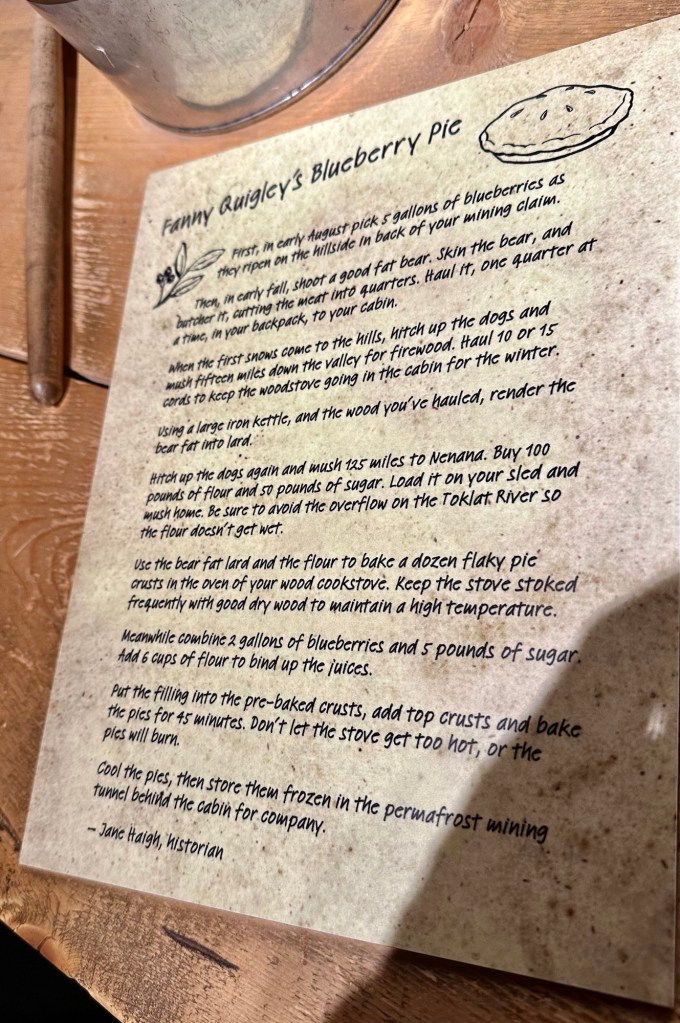 Fanny Quigley's Blueberry Pie
First, in early August pick 5 gallons of blueberries as
they ripen on the hillside in back of your mining claim.
Then, in early fall, shoot a good fat bear. Skin the bear, and
butcher it, cutting the meat into quarters. Haul it, one quarter at
a time, in your backpack, to your cabin.
When the first snows come to the hills, hitch up the dogs and
mush fifteen miles down the valley for firewood. Haul 10 or 15
cords to keep the woodstove going in the cabin for the winter.
Using a large iron kettle, and the wood you've hauled, render the
bear fat into lard.
Hitch up the dogs again and mush 125 miles to Nenana. Buy 100
pounds of flour and 50 pounds of sugar. Load it on your sled and
mush home. Be sure to avoid the overflow on the Toklat River so
the flour doesn't get wet.
Use the bear fat lard and the flour to bake a dozen flaky pie
crusts in the oven of your wood cookstove. Keep the stove stoked
frequently with good dry wood to maintain a high temperature.
Meanwhile combine 2 gallons of blueberries and 5 pounds of sugar.
Add 6 cups of flour to bind up the juices.
Put the filling into the pre-baked crusts, add top crusts and bake
the pies for 45 minutes. Don't let the stove get too hot, or the
pies will burn.
Cool the pies, then store them frozen in the permafrost mining
tunnel behind the cabin for company.
– Jane Haigh, historian